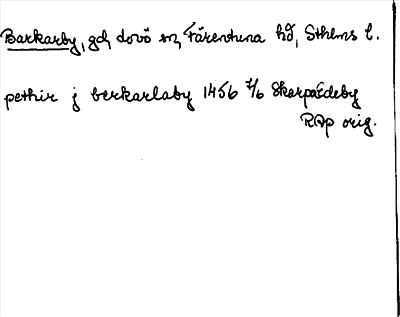 Barkarby, gd, Lovö sn, Färentuna hd, Sthlms l.
pethir j berkarlaby 1456 7/6 Skarpårdeby
RAp orig.